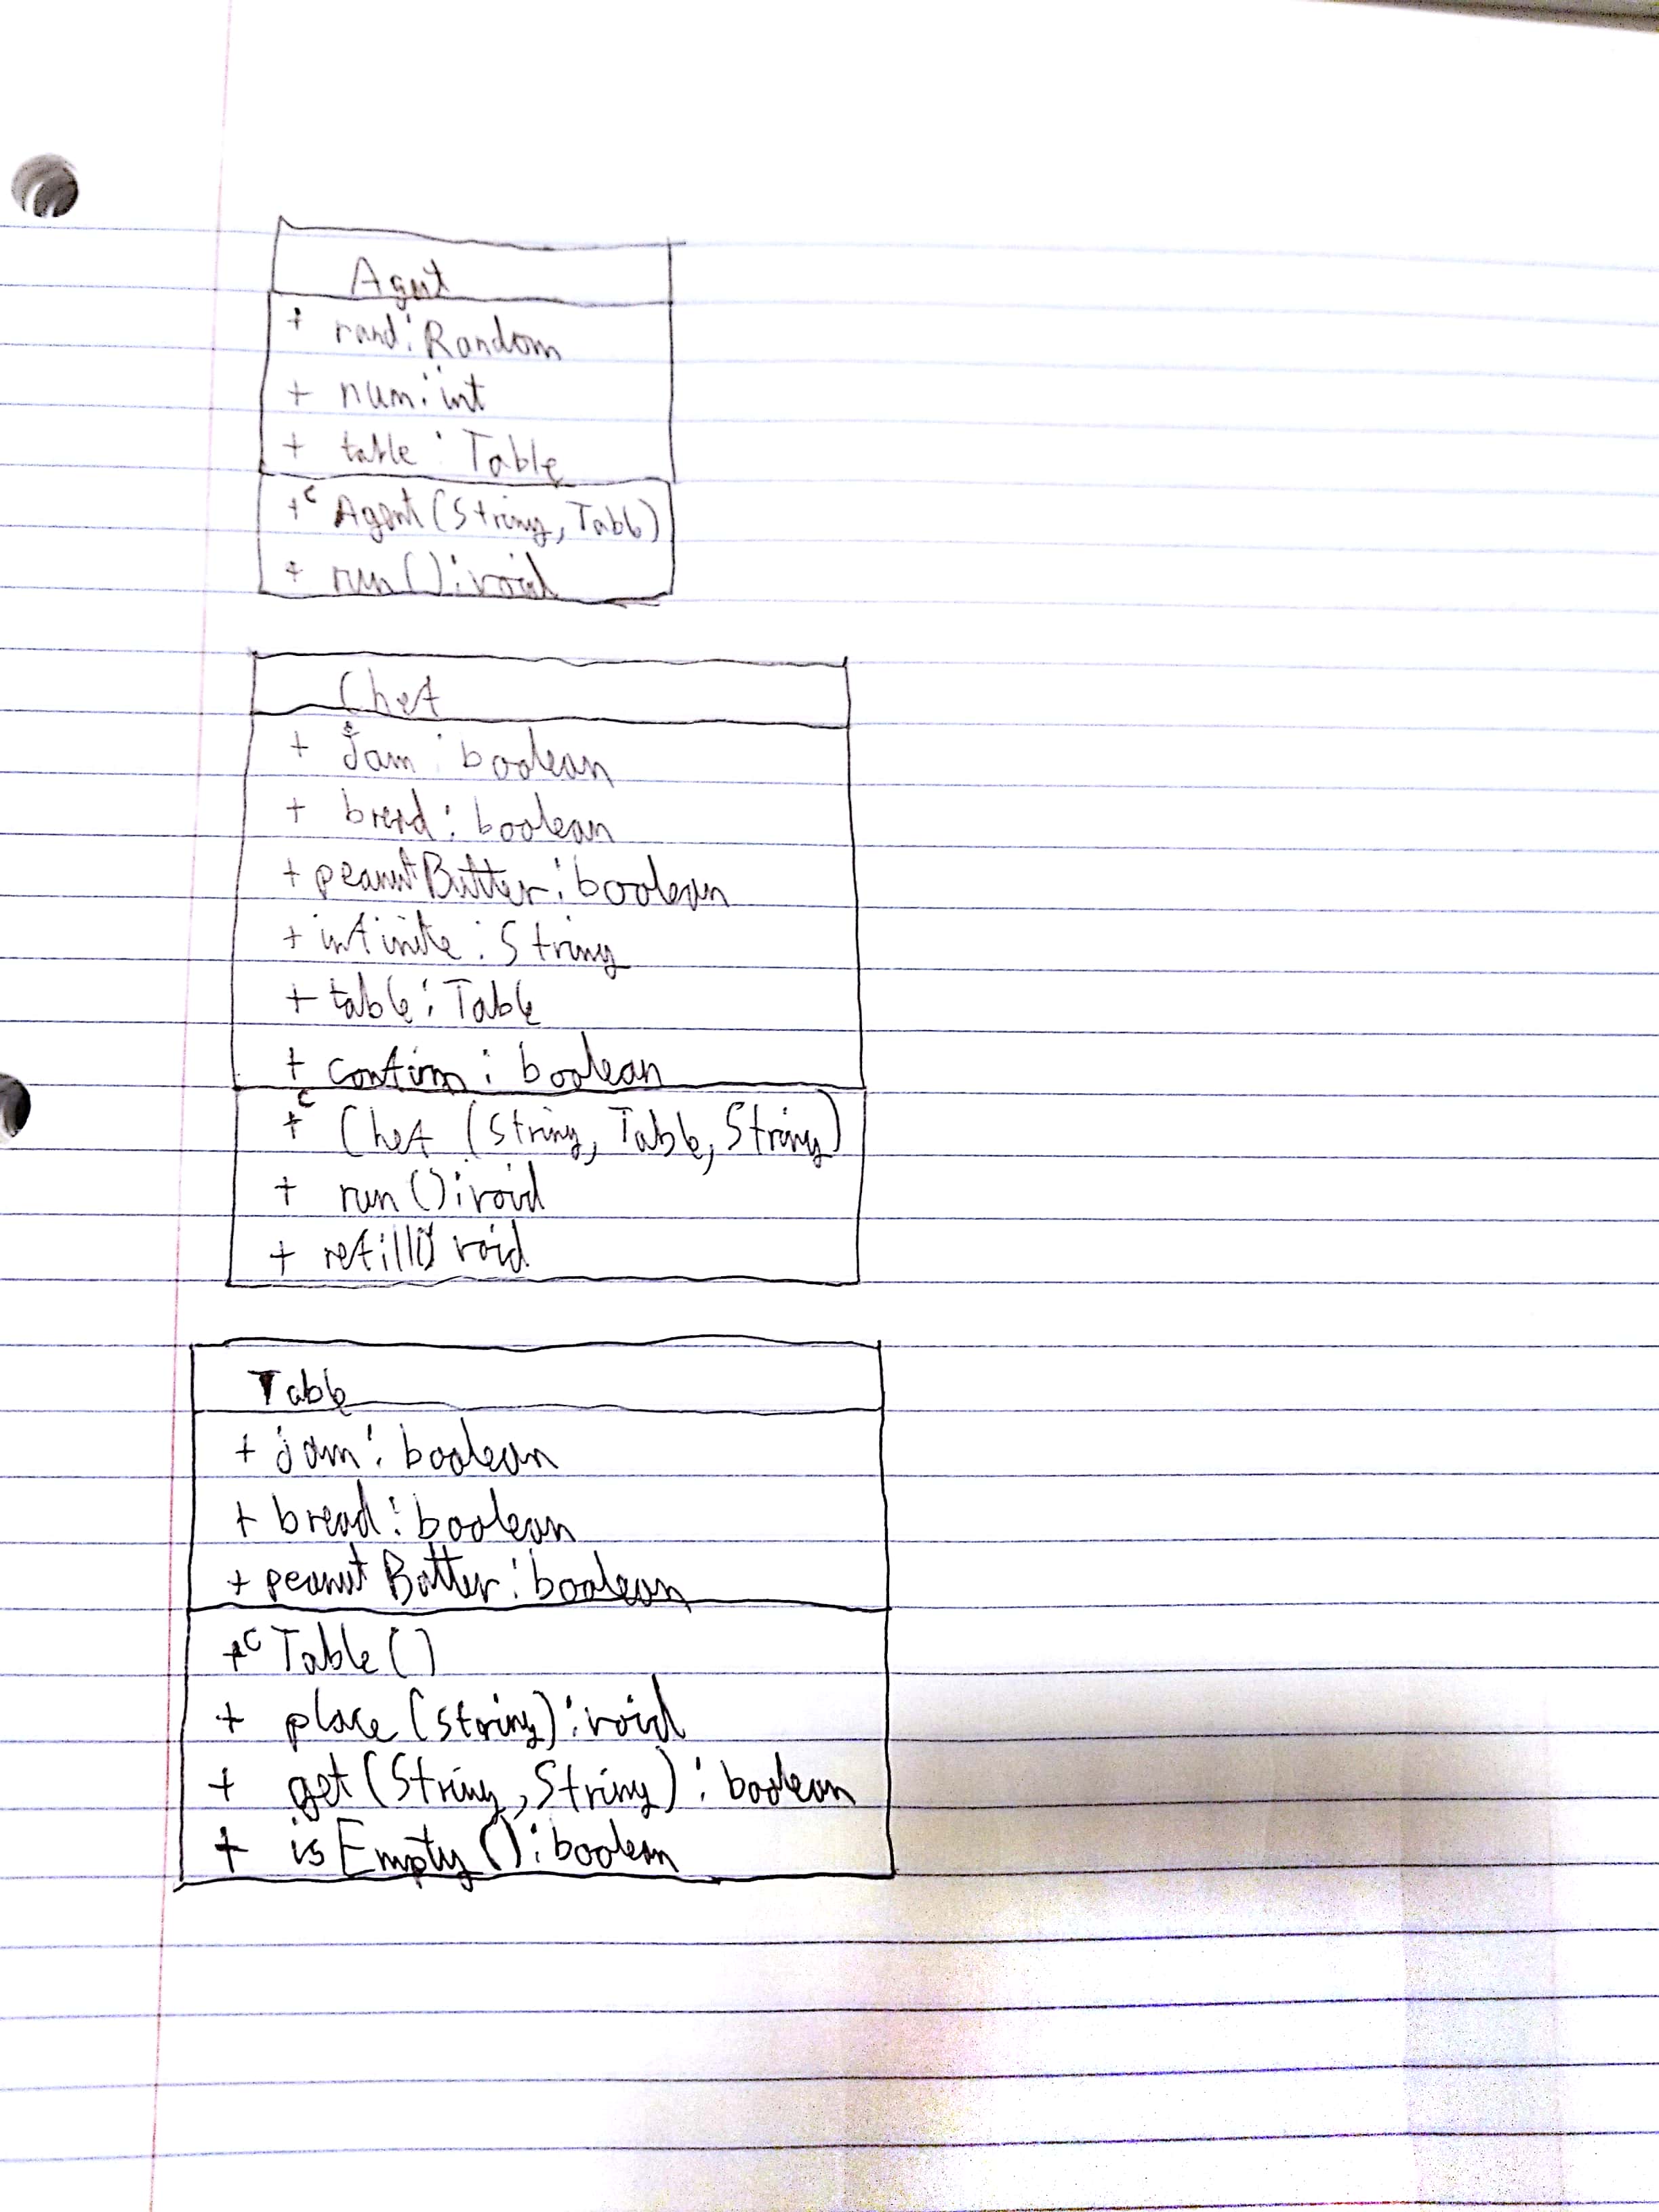 Agent
+ rand: Random
+ num: int
+ table: Table
+c Agent(String, Table)
+ run(): void
Chef
+ jam: boolean
+ bread: boolean
+ peanutButter: boolean
+ infinite: String
+ table: Table
+ confirm: boolean
+c Chef (String, Table, String)
+ run(): void
+ refill() void
Table
+ jam: boolean
+ bread: boolean
+ peanutButter: boolean
+c Table()
+ place(String): void
+ get(String, String): boolean
+ isEmpty(): boolean